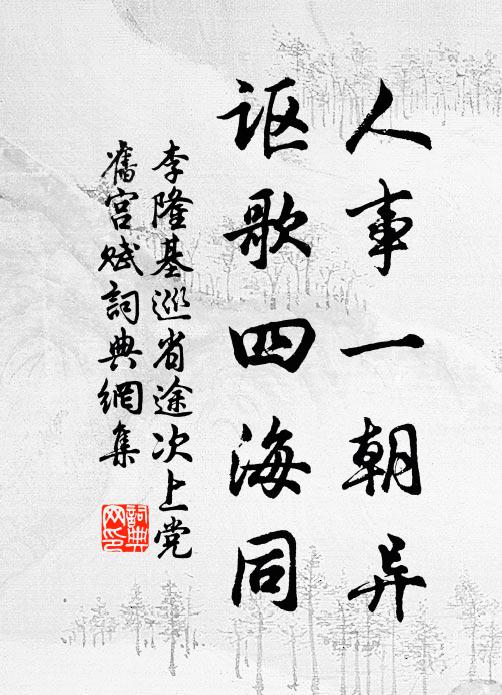 人事一朝异
讴歌四海同
李隆基巡省途次上党
旧宫赋詞典網集
詞典网印